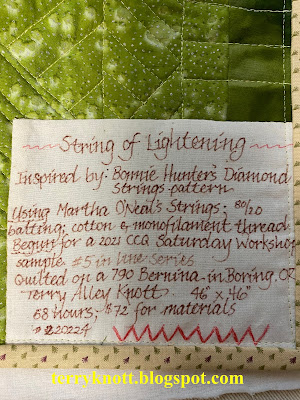 String of Lightening
Inspired by: Bonnie Hunter's Diamond
Strings pattern
Using Martha O'Neal's Strings; 80/20
batting; cotton & monofilament thread
Begun for a 2021 CCQ Saturday Workshop
sample #5 in line series
Quilted on a 790 Bernina in Boring, OR
Terry Alley Knott 46" x 46"
58 hours; $72 for materials
terryknott.blogspot.com